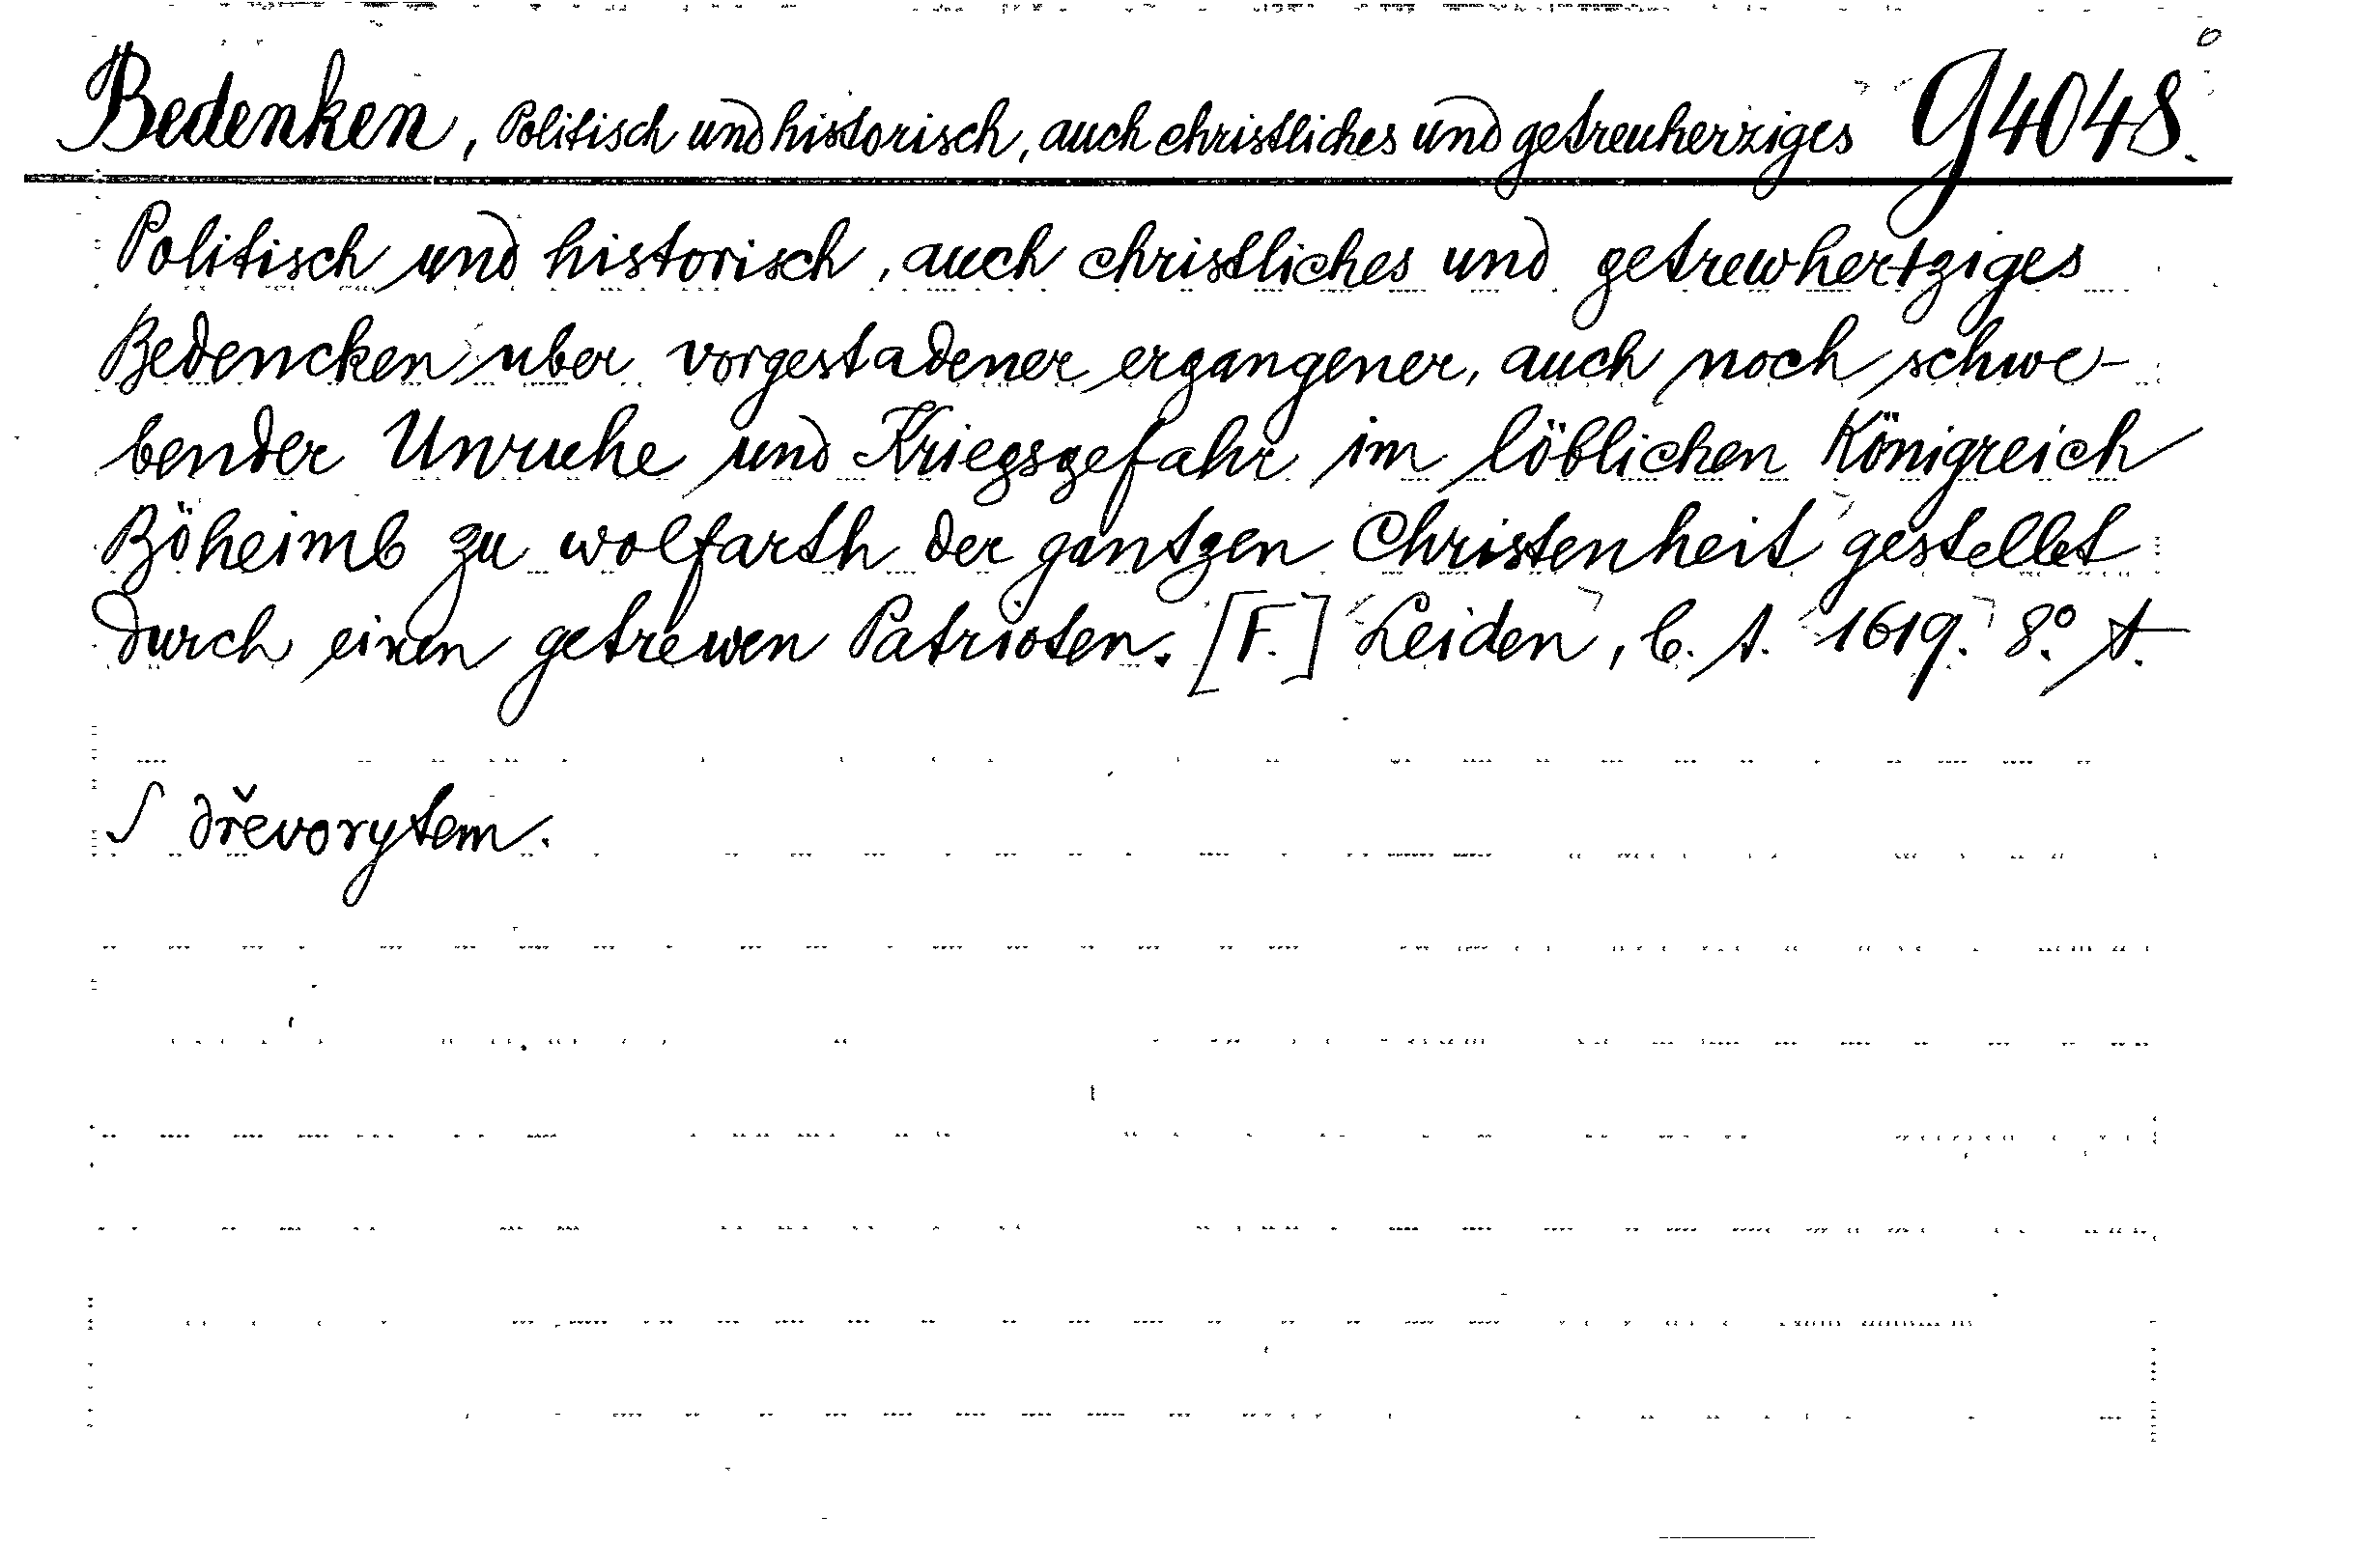 Bedenken, Politisch und historisch, auch christliches und getreuherziges 9 4048.
Politisch und historisch, auch christliches und getrewhertziges
Bedencken uber vorgestadener ergangener, auch noch schwe-
bender Unruhe und Kriegsgefahr im löblichen Königreich
Böheimb zu wolfarth der gantzen Christenheit gestellet
durch einen getrewen Patrioten. [F.] Leiden, b. t. 1619. 8°. A.
S dřevorytem.